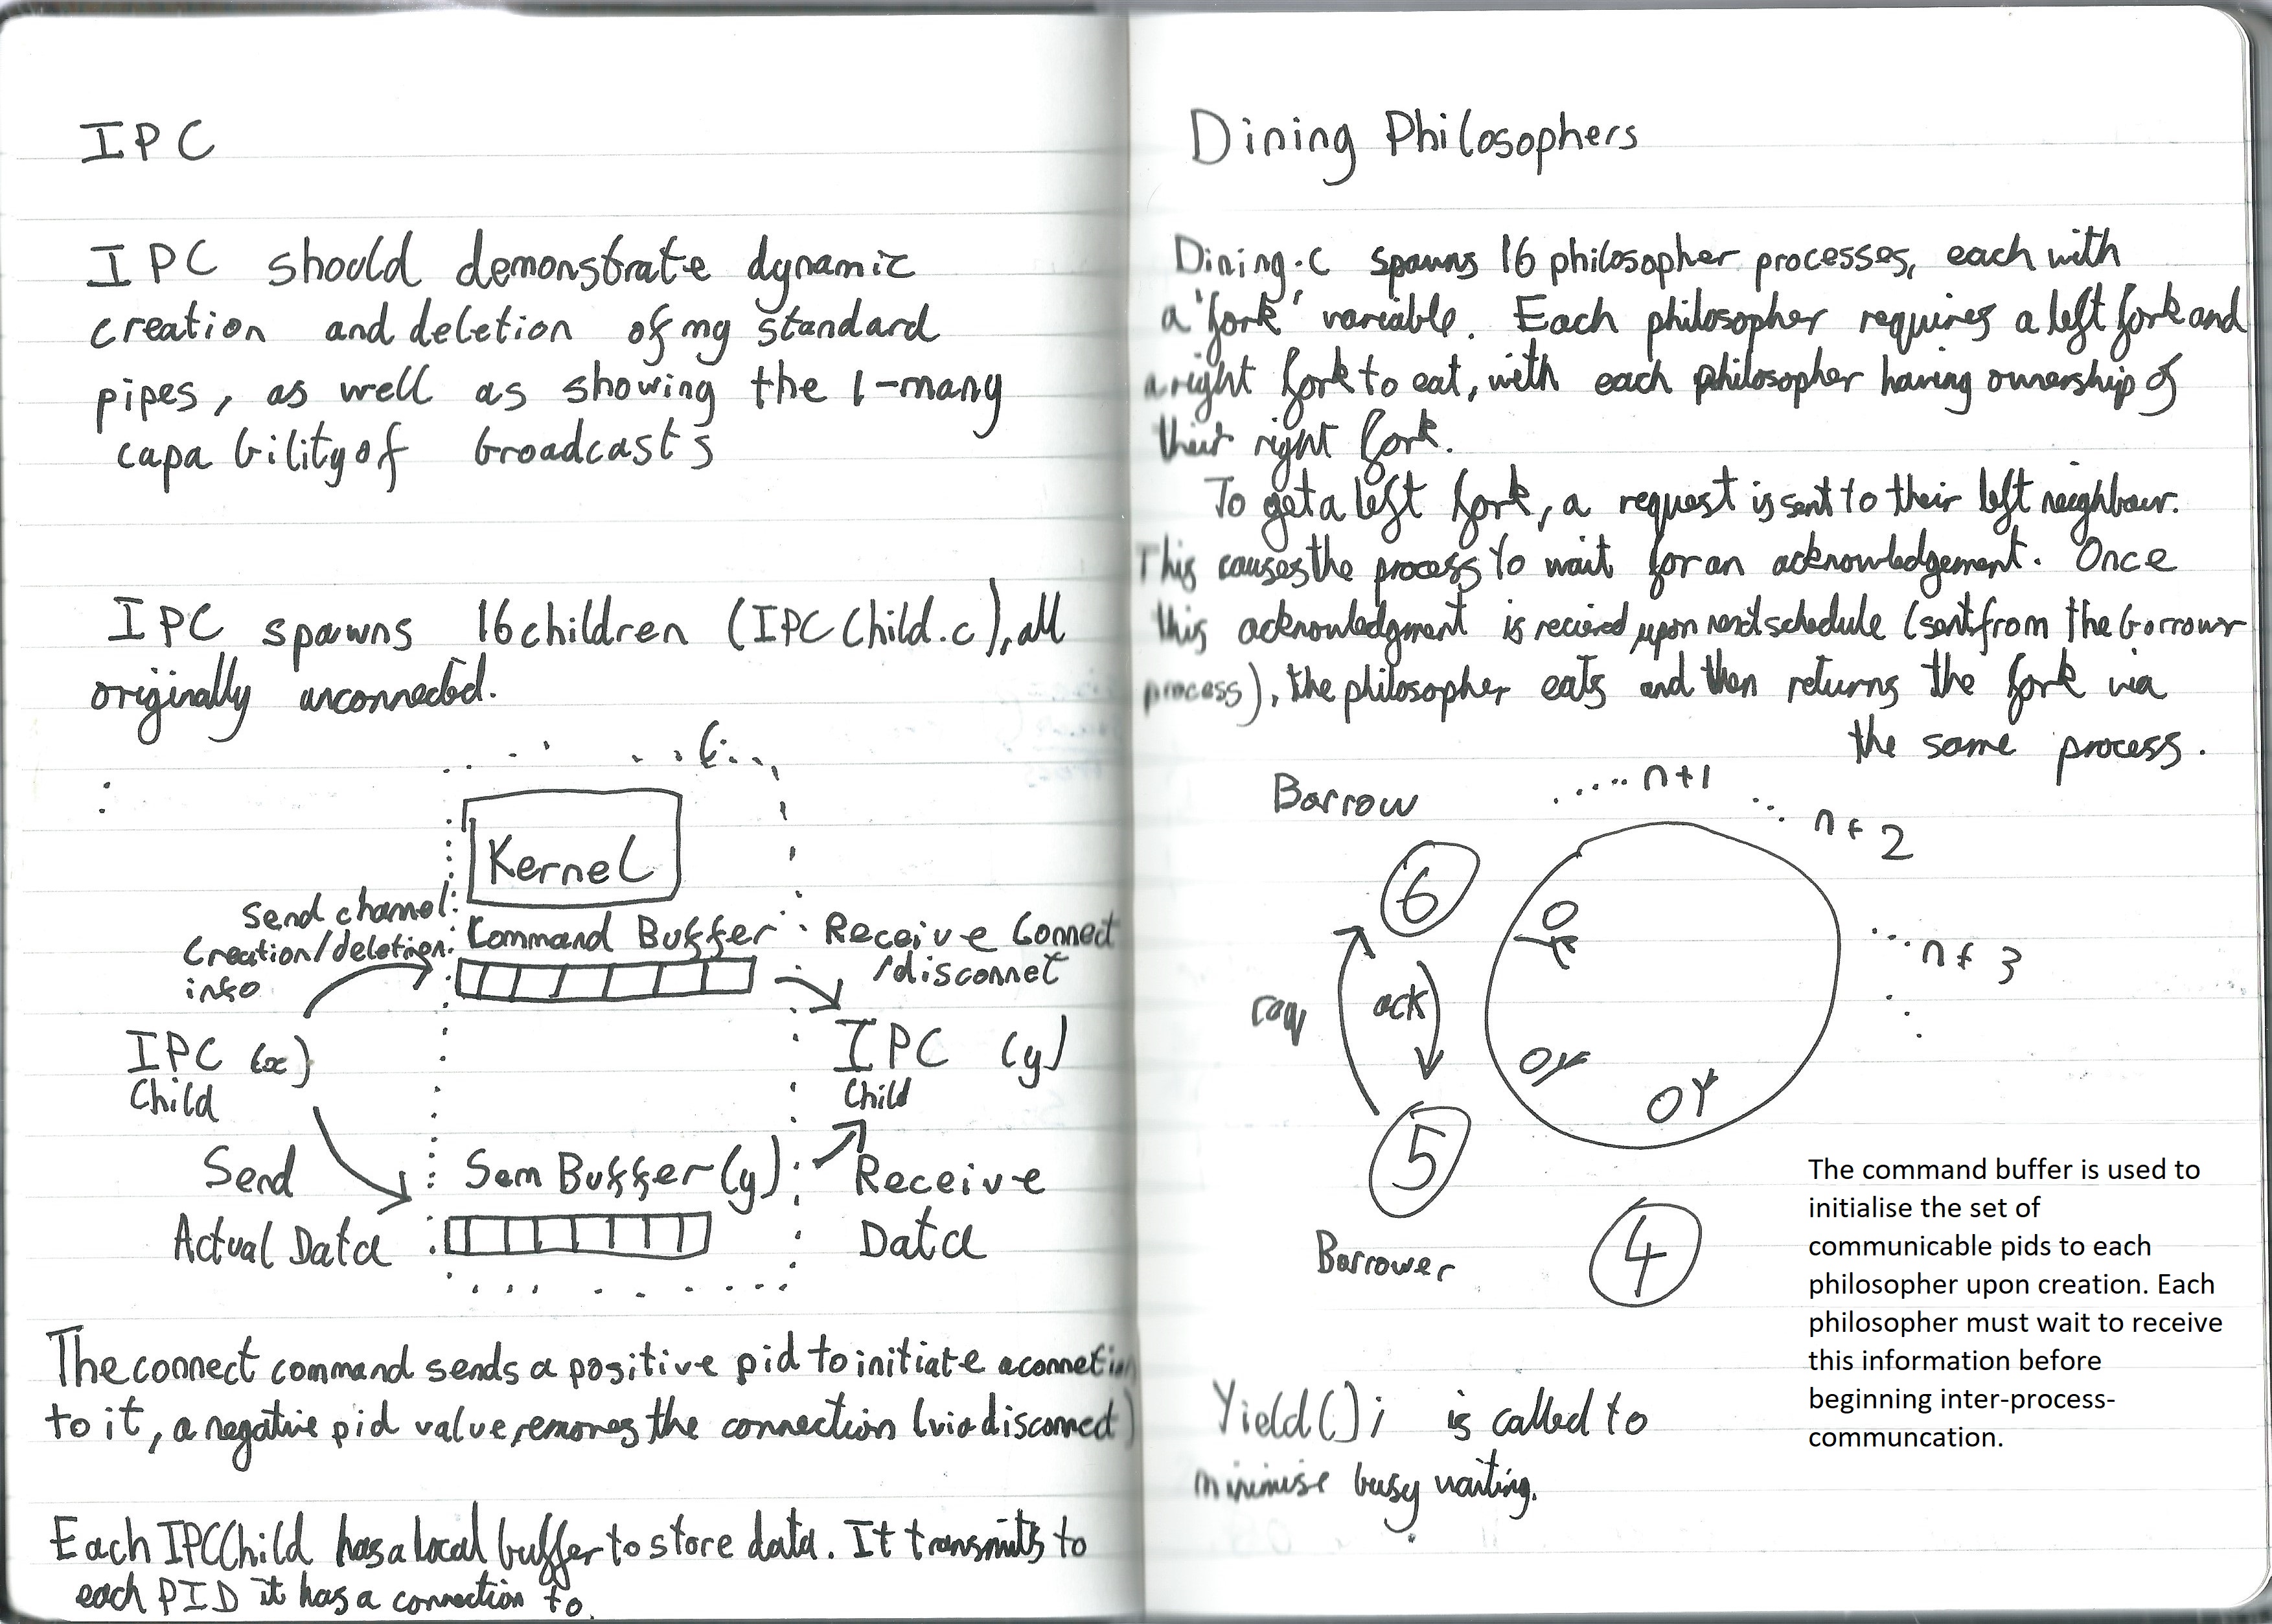 IPC
IPC should demonstrate dynamic
creation and deletion of my standard
pipes, as well as showing the 1-many
capability of broadcasts
IPC spawns 16 children (IPCChild.c), all
originally unconnected.
Kernel
Send channel
Creation/deletion
info
Command Buffer
Receive Connect
/disconnet
IPC (x)
Child
IPC (y)
Child
Send
Actual Data
Sem Buffer (y)
Receive
Data
The connect command sends a positive pid to initiate a connetion
to it, a negative pid value, removes the connection (via disconnect)
Each IPCChild has a local buffer to store data. It transmits to
each PID it has a connection to.
Dining Philosophers
Dining.c spawns 16 philosopher processes, each with
a 'fork' variable. Each philosopher requires a left fork and
a right fork to eat, with each philosopher having ownership of
their right fork.
To get a left fork, a request is sent to their left neighbour.
This causes the process to wait for an acknowledgement. Once
this acknowledgment is recieved upon next schedule (sent from the borrower
process), the philosopher eats and then returns the fork via
the same process.
Borrow
n+1
n+2
n+3
6
req
ack
5
4
Borrower
The command buffer is used to
initialise the set of
communicable pids to each
philosopher upon creation. Each
philosopher must wait to receive
this information before
beginning inter-process-
communcation.
Yield(); is called to
minimise busy waiting.